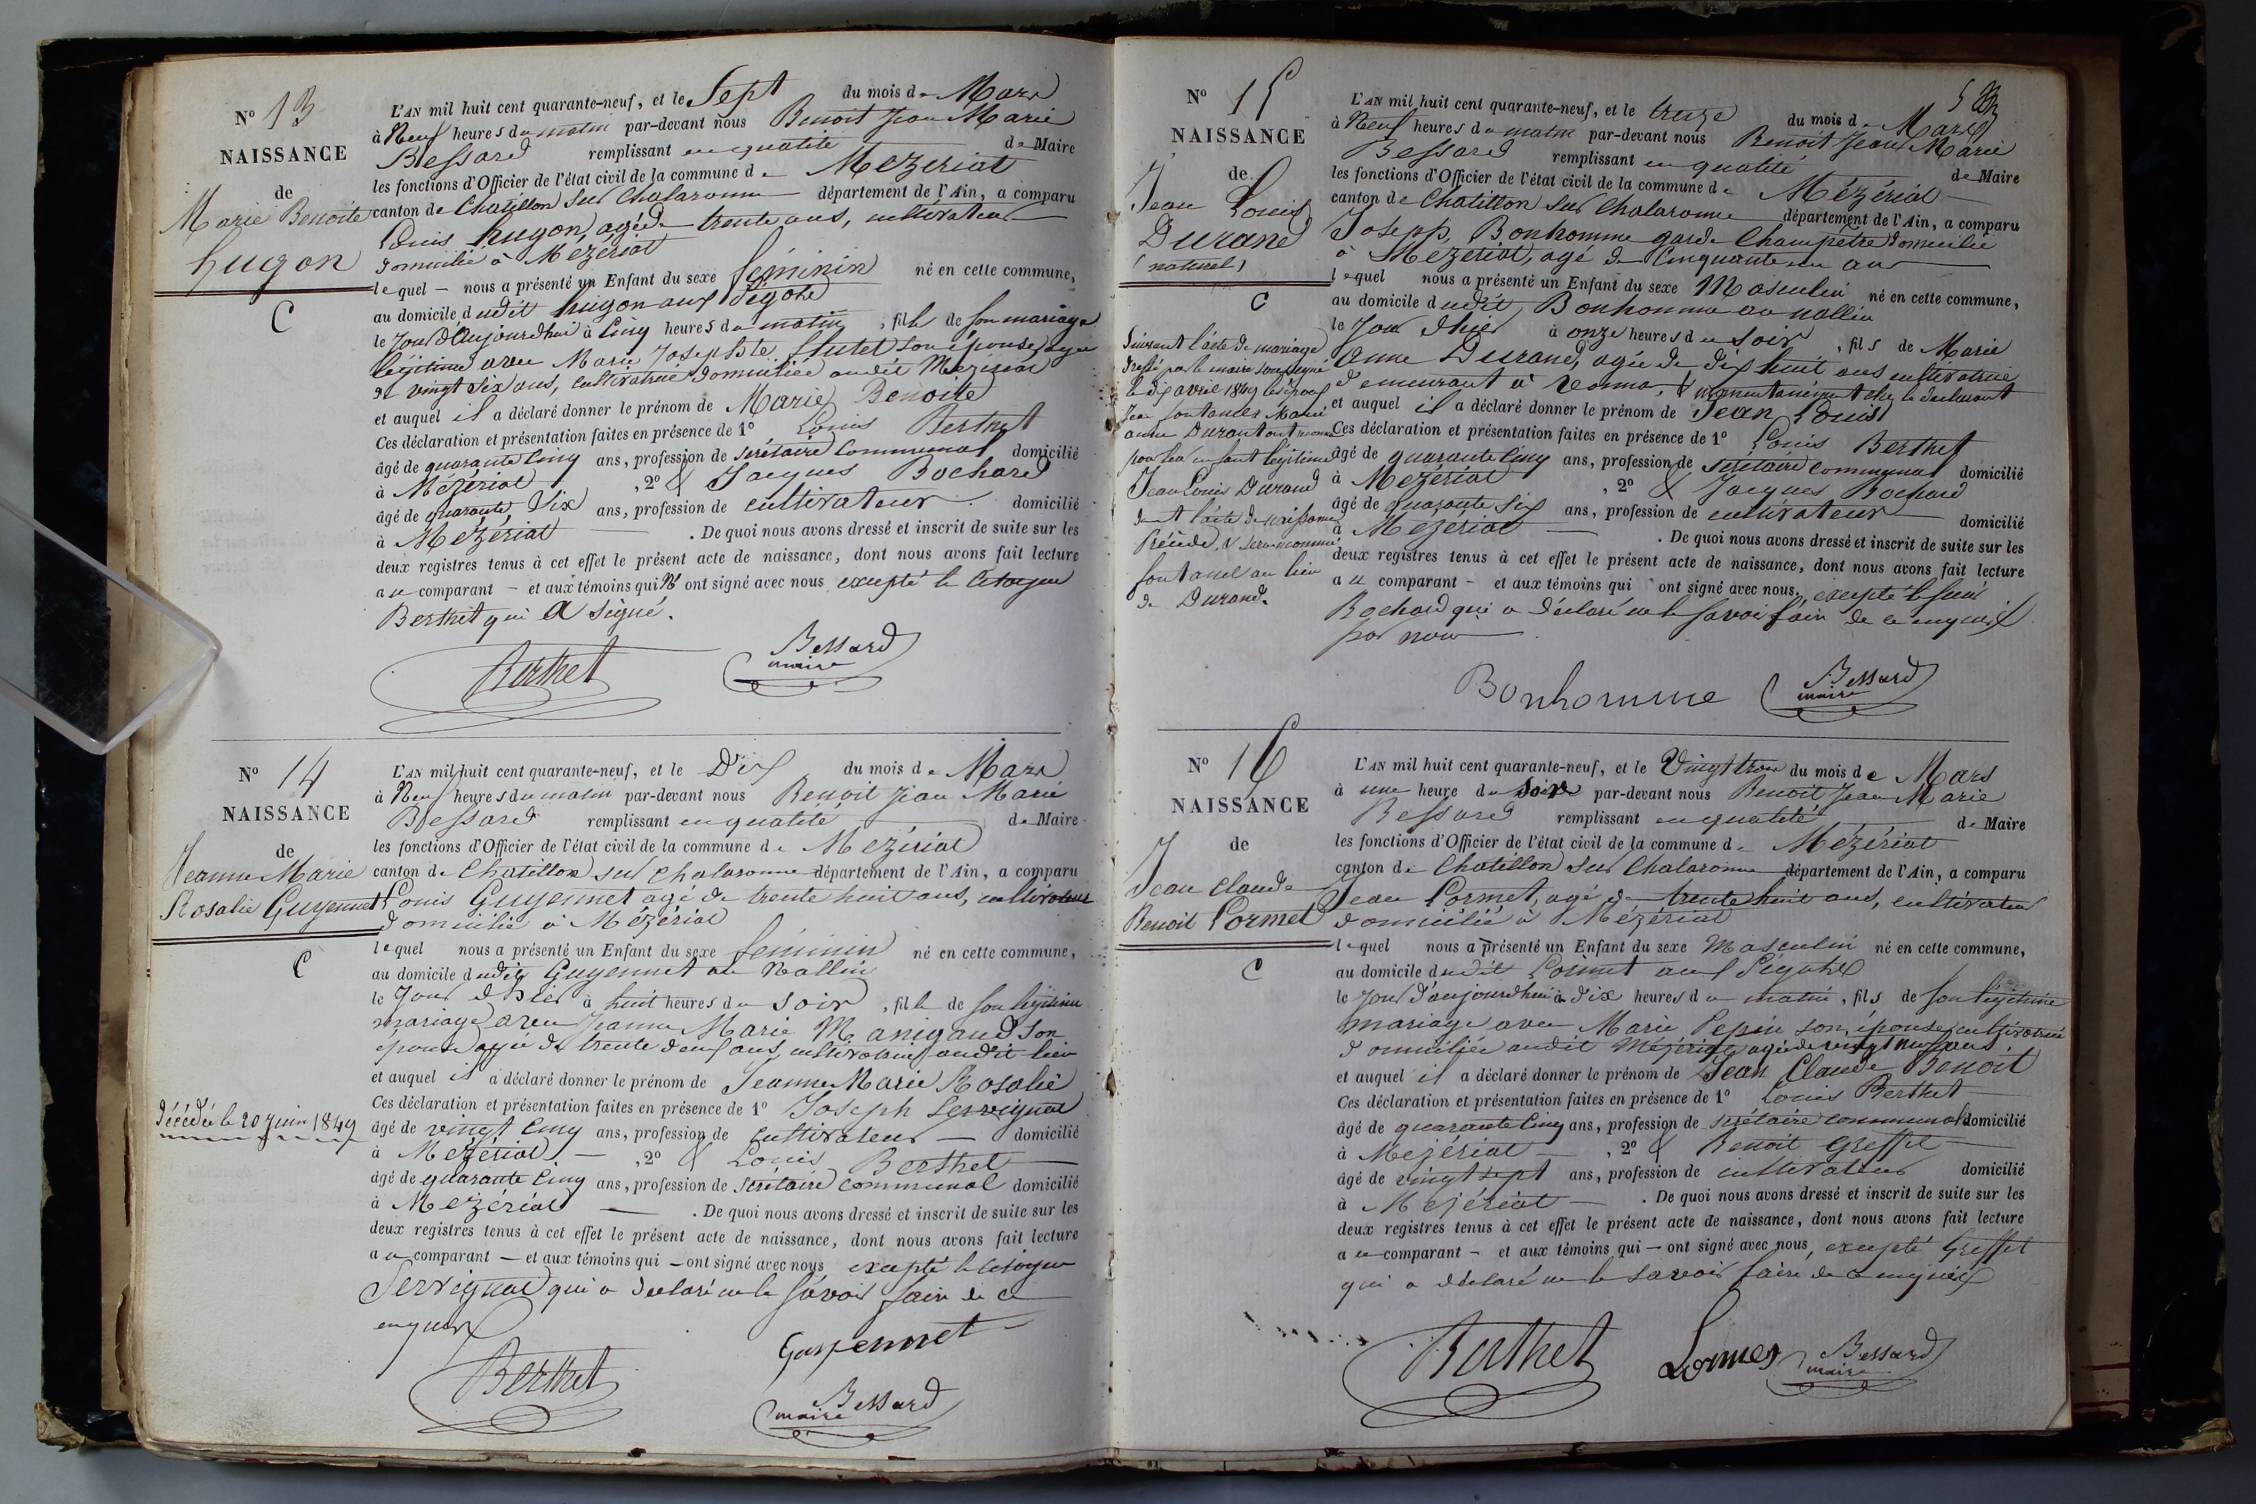 N° 13
NAISSANCE
de
Marie Benoite
hugon
C
L'AN mil huit cent quarante-neuf, et le Sept du mois de Mars
à Neuf heures du matin par-devant nous Benoit Jean Marie
Bessard remplissant en qualité de Maire
les fonctions d'Officier de l'état civil de la commune de Mézériat
canton de Chatillon sur Chalaronne département de l'Ain, a comparu
Louis hugon, agé de trente ans, cultivateur
domicilié à Mézériat
lequel — nous a présenté un Enfant du sexe féminin né en cette commune,
au domicile dudit hugon aux Ségohe
le Jour d'Aujourdhui à Cinq heures du matin, fille de son mariage
légitime avec Marie Josephte son épouse, agée
de vingt six ans, cultivatrice domiciliée audit Mézériat
et auquel il a déclaré donner le prénom de Marie Benoite
Ces déclaration et présentation faites en présence de 1° Louis Berthet
âgé de quarante Cinq ans, profession de secrétaire communal domicilié
à Mézériat, 2° & Jacques Bochard
âgé de quarante Six ans, profession de cultivateur domicilié
à Mézériat — . De quoi nous avons dressé et inscrit de suite sur les
deux registres tenus à cet effet le présent acte de naissance, dont nous avons fait lecture
au comparant — et aux témoins qui N' ont signé avec nous excepté le Citoyen
Berthet qui a signé.
Berthet
Bessard
maire
N° 14
NAISSANCE
de
Jeanne Marie
Rosalie Guyennet
C
Décédée le 20 Juin 1849
L'AN mil huit cent quarante-neuf, et le Dix du mois de Mars
à Neuf heures du matin par-devant nous Benoit Jean Marie
Bessard remplissant en qualité de Maire
les fonctions d'Officier de l'état civil de la commune de Mézériat
canton de Chatillon sur Chalaronne département de l'Ain, a comparu
Louis Guyennet agé de trente huit ans, cultivateur
domicilié à Mézériat
lequel nous a présenté un Enfant du sexe féminin né en cette commune,
au domicile dudit Guyennet au Nallin
le Jour d'hier à huit heures du soir, fille de son légitime
mariage avec Jeanne Marie Manigaud son
épouse agée de trente deux ans, cultivatrice audit lieu
et auquel il a déclaré donner le prénom de Jeanne Marie Rosalie
Ces déclaration et présentation faites en présence de 1° Joseph Servignat
âgé de vingt Cinq ans, profession de cultivateur — domicilié
à Mézériat — , 2° & Louis Berthet
âgé de quarante Cinq ans, profession de secrétaire communal domicilié
à Mézériat — . De quoi nous avons dressé et inscrit de suite sur les
deux registres tenus à cet effet le présent acte de naissance, dont nous avons fait lecture
au comparant — et aux témoins qui — ont signé avec nous excepté le Citoyen
Servignat qui a déclaré ne le savoir faire de ce
enquis
Guyennet
Berthet
Bessard
maire
N° 15
NAISSANCE
de
Jean Louis
Durand
(naturel)
C
Suivant l'acte de mariage
dressé par le maire soussigné
le dix avril 1849 les époux
Jean fontanel et Marie
anne Durand ont reconnu
pour leur enfant légitime
Jean Louis Durand
dont l'acte de naissance
Précède, & sera nommé
fontanel au lieu
de Durand.
L'AN mil huit cent quarante-neuf, et le treize du mois de Mars
à Neuf heures du matin par-devant nous Benoit Jean Marie
Bessard remplissant en qualité de Maire
les fonctions d'Officier de l'état civil de la commune de Mézériat
canton de Chatillon sur Chalaronne département de l'Ain, a comparu
Joseph Bonhomme garde Champêtre domicilié
à Mézériat, agé de Cinquante un ans
lequel nous a présenté un Enfant du sexe Masculin né en cette commune,
au domicile dudit Bonhomme au nallin
le Jour d'hier à onze heures du soir, fils de Marie
Anne Durand, agée de dix huit ans cultivatrice
demeurant à vonnas, & momentanément chez le déclarant
et auquel il a déclaré donner le prénom de Jean Louis
Ces déclaration et présentation faites en présence de 1° Louis Berthet
âgé de quarante Cinq ans, profession de secrétaire communal domicilié
à Mézériat, 2° & Jacques Bochard
âgé de quarante six ans, profession de cultivateur domicilié
à Mézériat — . De quoi nous avons dressé et inscrit de suite sur les
deux registres tenus à cet effet le présent acte de naissance, dont nous avons fait lecture
au comparant — et aux témoins qui ont signé avec nous, excepté le sieur
Bochard qui a déclaré ne le savoir faire de ce enquis
par nous
Bonhomme
Bessard
maire
N° 16
NAISSANCE
de
Jean Claude
Benoit Lormet
C
L'AN mil huit cent quarante-neuf, et le Vingt trois du mois de Mars
à une heure du soir par-devant nous Benoit Jean Marie
Bessard remplissant en qualité de Maire
les fonctions d'Officier de l'état civil de la commune de Mézériat
canton de Chatillon sur Chalaronne département de l'Ain, a comparu
Jean Lormet, agé de trente huit ans, cultivateur
domicilié à Mézériat
lequel nous a présenté un Enfant du sexe Masculin né en cette commune,
au domicile dudit Lormet aux Ségohe
le Jour d'aujourdhui à dix heures du matin, fils de son légitime
mariage avec Marie Pepin son épouse cultivatrice
domiciliée audit Mézériat agée de vingt neuf ans
et auquel il a déclaré donner le prénom de Jean Claude Benoit
Ces déclaration et présentation faites en présence de 1° Louis Berthet
âgé de quarante Cinq ans, profession de secrétaire communal domicilié
à Mézériat — , 2° & Benoit Greffet
âgé de vingt sept ans, profession de cultivateur domicilié
à Mézériat — . De quoi nous avons dressé et inscrit de suite sur les
deux registres tenus à cet effet le présent acte de naissance, dont nous avons fait lecture
au comparant — et aux témoins qui — ont signé avec nous, excepté Greffet
qui a déclaré ne le savoir faire de ce enquis
Berthet
Lormet
Bessard
maire